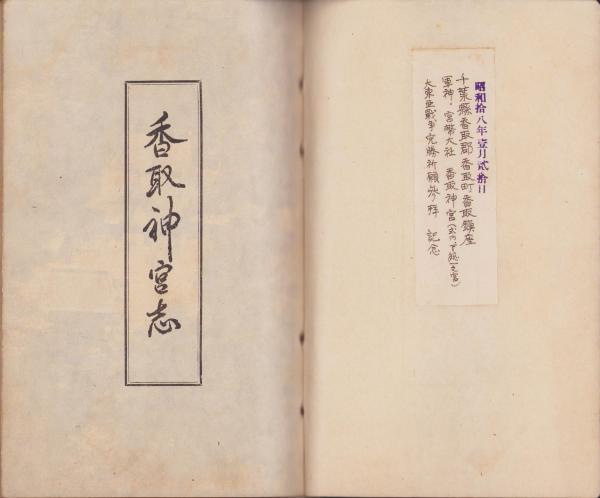 昭和拾八年壹月貳拾日
千葉縣香取郡香取町香取鎮座
軍神・官幣大社 香取神宮(下総一之宮)
大東亜戦争完勝祈願参拝 記念
香取神宮志